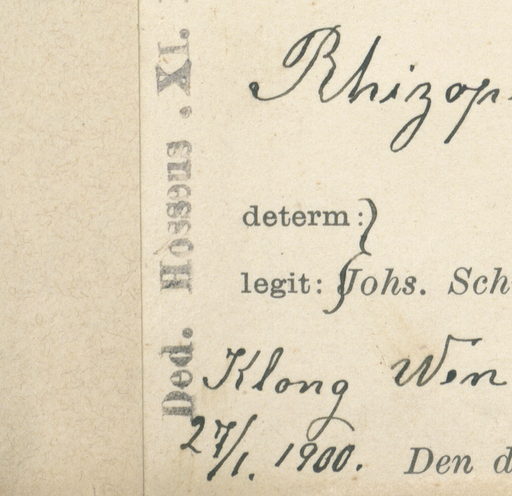 Rhizop
determ:
legit: Johs. Sch
Klong Wen
27/1. 1900. Den d
Ded. Hosseus. XI.